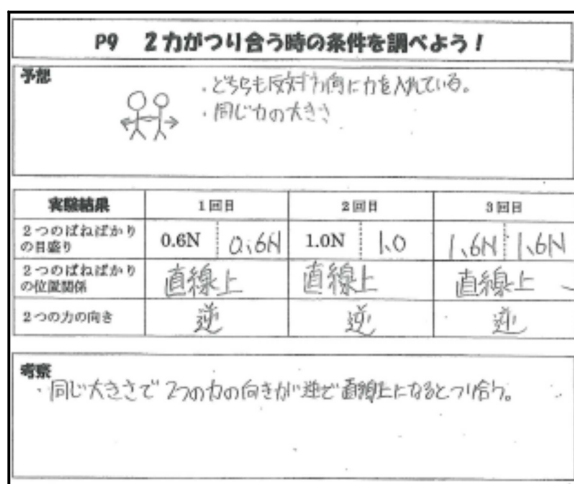 P9 2力がつり合う時の条件を調べよう!
予想
・どちらも反対方向に力を入れている。
・同じ力の大きさ
実験結果 1回目 2回目 3回目
2つのばねばかりの目盛り 0.6N 0.6N 1.0N 1.0 1.6N 1.6N
2つのばねばかりの位置関係 直線上 直線上 直線上
2つの力の向き 逆 逆 逆
考察
・同じ大きさで2つの力の向きが逆で直線上になるとつり合う。